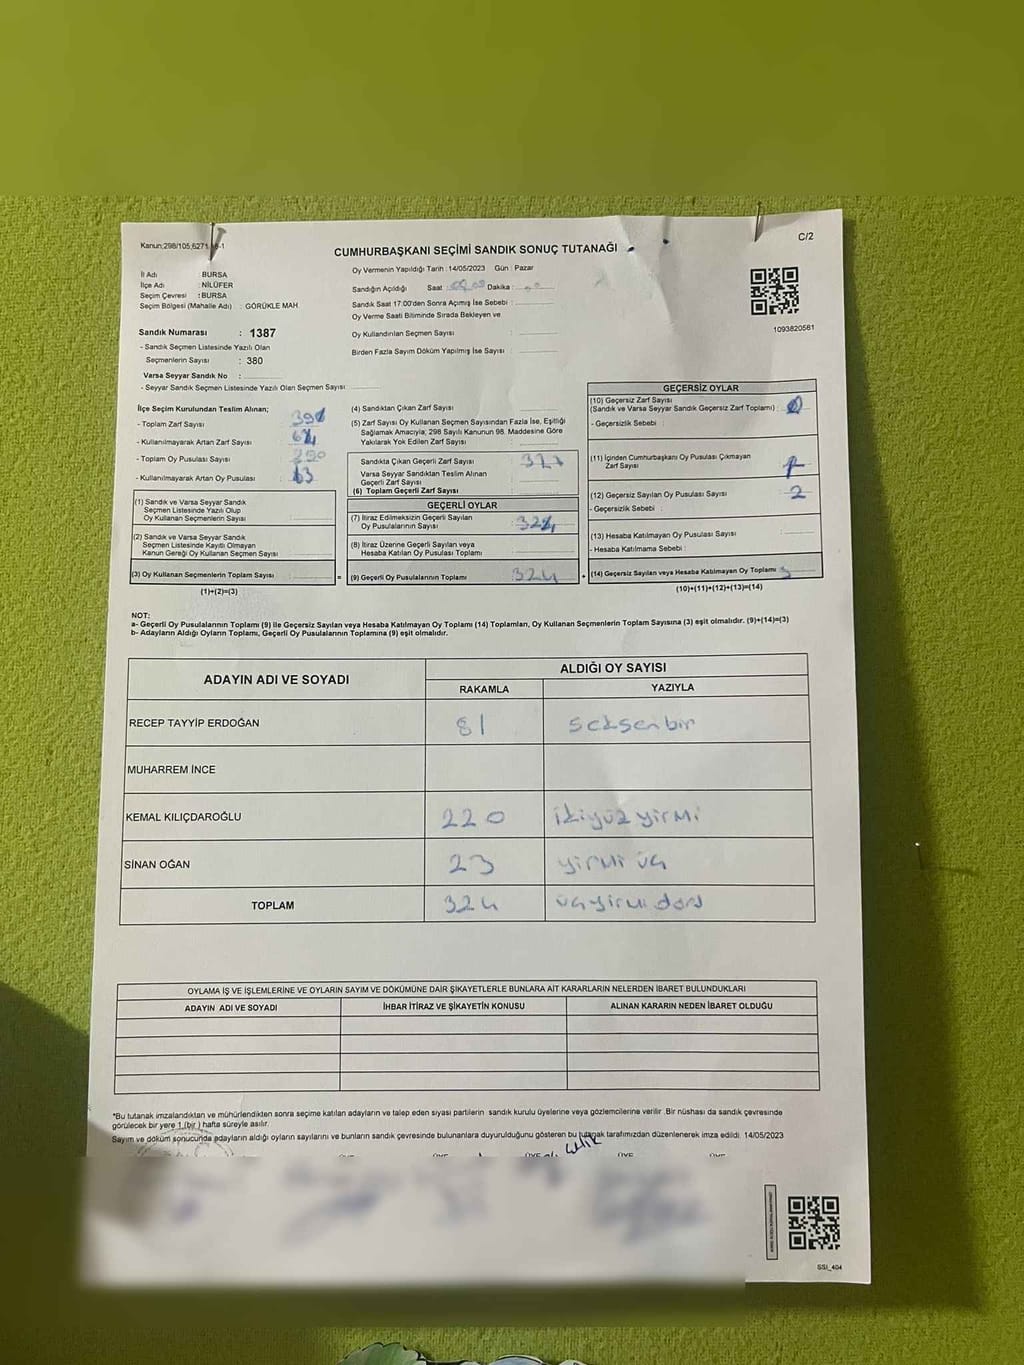 Kanun;298/105,6271
C/2
CUMHURBAŞKANI SEÇİMİ SANDIK SONUÇ TUTANAĞI
İl Adı : BURSA
İlçe Adı : NİLÜFER
Seçim Çevresi : BURSA
Seçim Bölgesi (Mahalle Adı) : GÖRÜKLE MAH.
Oy Vermenin Yapıldığı Tarih : 14/05/2023 Gün : Pazar
Sandığın Açıldığı Saat Dakika :
Sandık Saat 17:00'den Sonra Açımış İse Sebebi :
Oy Verme Saati Bitiminde Sırada Bekleyen ve
Oy Kullandırılan Seçmen Sayısı :
Birden Fazla Sayım Döküm Yapılmış İse Sayısı :
1093820581
Sandık Numarası : 1387
- Sandık Seçmen Listesinde Yazılı Olan
Seçmenlerin Sayısı : 380
Varsa Seyyar Sandık No :
- Seyyar Sandık Seçmen Listesinde Yazılı Olan Seçmen Sayısı:
İlçe Seçim Kurulundan Teslim Alınan;
- Toplam Zarf Sayısı :
- Kullanılmayarak Artan Zarf Sayısı :
- Toplam Oy Pusulası Sayısı :
- Kullanılmayarak Artan Oy Pusulası : 63
(1) Sandık ve Varsa Seyyar Sandık
Seçmen Listesinde Yazılı Olup
Oy Kullanan Seçmenlerin Sayısı :
(2) Sandık ve Varsa Seyyar Sandık
Seçmen Listesinde Kayıtlı Olmayan
Kanun Gereği Oy Kullanan Seçmen Sayısı :
(3) Oy Kullanan Seçmenlerin Toplam Sayısı :
(1)+(2)=(3)
(4) Sandıktan Çıkan Zarf Sayısı :
(5) Zarf Sayısı Oy Kullanan Seçmen Sayısından Fazla İse, Eşitliği
Sağlamak Amacıyla, 298 Sayılı Kanunun 98. Maddesine Göre
Yakılarak Yok Edilen Zarf Sayısı :
Sandıkta Çıkan Geçerli Zarf Sayısı :
Varsa Seyyar Sandıktan Teslim Alınan
Geçerli Zarf Sayısı :
(6) Toplam Geçerli Zarf Sayısı :
GEÇERLİ OYLAR
(7) İtiraz Edilmeksizin Geçerli Sayılan
Oy Pusulalarının Sayısı : 324
(8) İtiraz Üzerine Geçerli Sayılan veya
Hesaba Katılan Oy Pusulası Toplamı :
= (9) Geçerli Oy Pusulalarının Toplamı : 324 +
GEÇERSİZ OYLAR
(10) Geçersiz Zarf Sayısı
(Sandık ve Varsa Seyyar Sandık Geçersiz Zarf Toplamı) :
- Geçersizlik Sebebi :
(11) İçinden Cumhurbaşkanı Oy Pusulası Çıkmayan
Zarf Sayısı :
(12) Geçersiz Sayılan Oy Pusulası Sayısı : 2
- Geçersizlik Sebebi :
(13) Hesaba Katılmayan Oy Pusulası Sayısı :
- Hesaba Katılmama Sebebi :
(14) Geçersiz Sayılan veya Hesaba Katılmayan Oy Toplamı : 3
(10)+(11)+(12)+(13)=(14)
NOT:
a- Geçerli Oy Pusulalarının Toplamı (9) ile Geçersiz Sayılan veya Hesaba Katılmayan Oy Toplamı (14) Toplamları, Oy Kullanan Seçmenlerin Toplam Sayısına (3) eşit olmalıdır. (9)+(14)=(3)
b- Adayların Aldığı Oyların Toplamı, Geçerli Oy Pusulalarının Toplamına (9) eşit olmalıdır.
ADAYIN ADI VE SOYADI
ALDIĞI OY SAYISI
RAKAMLA YAZIYLA
RECEP TAYYİP ERDOĞAN 81 seksenbir
MUHARREM İNCE
KEMAL KILIÇDAROĞLU 220 ikiyüzyirmi
SİNAN OĞAN 23 yirmi üç
TOPLAM 324 üçyirmidört
OYLAMA İŞ VE İŞLEMLERİNE VE OYLARIN SAYIM VE DÖKÜMÜNE DAİR ŞİKAYETLERLE BUNLARA AİT KARARLARIN NELERDEN İBARET BULUNDUKLARI
ADAYIN ADI VE SOYADI İHBAR İTİRAZ VE ŞİKAYETİN KONUSU ALINAN KARARIN NEDEN İBARET OLDUĞU
*Bu tutanak imzalandıktan ve mühürlendikten sonra seçime katılan adayların ve talep eden siyasi partilerin sandık kurulu üyelerine veya gözlemcilerine verilir .Bir nüshası da sandık çevresinde
görülecek bir yere 1 (bir ) hafta süreyle asılır.
Sayım ve döküm sonucunda adayların aldığı oyların sayılarını ve bunların sandık çevresinde bulunanlara duyurulduğunu gösteren bu tutanak tarafımızdan düzenlenerek imza edildi. 14/05/2023
SSI_404